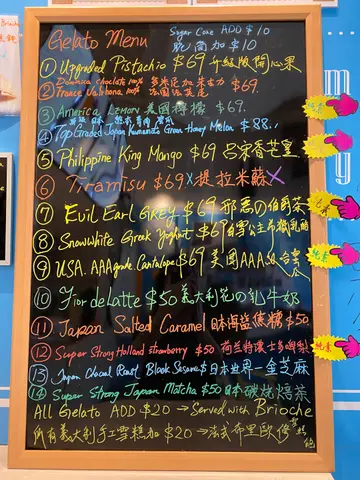 Gelato Menu
Sugar Cone ADD $10
脆筒加$10
① Upgraded Pistachio $69 升級版開心果
② Dominica choclate 100%
France Valrhona 100%
③ America Lemon 美國檸檬 $69
④ Top Graded Japan Kumamoto Green Honey Melon $88
⑤ Philippine King Mango $69 呂宋香芒皇
⑥ Tiramisu $69 X 提拉米蘇 X
⑦ Evil Earl Grey $69 邪惡の伯爵茶
⑧ Snowwhite Greek Yoghut $69 白雪公主希臘乳酪
⑨ USA. AAA grade Cantalope $69 美國AAA
⑩ Fior de latte $50 義大利花の乳牛奶
⑪ Japan Salted Caramel 日本海盗焦糖 $50
⑫ Super Strong Holland strawberry $50 荷兰特濃士多啤梨
⑬ Japan Chacol Roast Black Sesame $ 日本世界一金芝麻
⑭ Super Strong Japan Matcha $50 日本碳燒焙茶
All Gelato ADD $20 → Served with Brioche
所有義大利手工雪糕加 $20 → 法式布里歐修
純素
純素